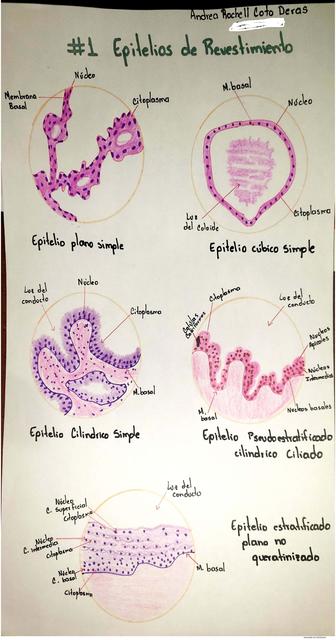 Andrea Rachell Coto Deras
#1 Epitelios de Revestimiento
Núcleo
Membrana
Basal
Citoplasma
Epitelio plano simple
M. basal
Núcleo
Citoplasma
Luz
del Coloide
Epitelio cúbico simple
Luz del
conducto
Núcleo
Citoplasma
M. basal
Epitelio Cilíndrico Simple
Citoplasma
Luz del
conducto
Núcleos
Apicales
Núcleos
Intermedios
Núcleos basales
M.
basal
Epitelio Pseudoestratificado
cilíndrico Ciliado
Luz del
conducto
Núcleo
C. Superficial
Citoplasma
Núcleo
C. intermedia
Citoplasma
Núcleo
C. basal
Citoplasma
M. basal
Epitelio estratificado
plano no
queratinizado